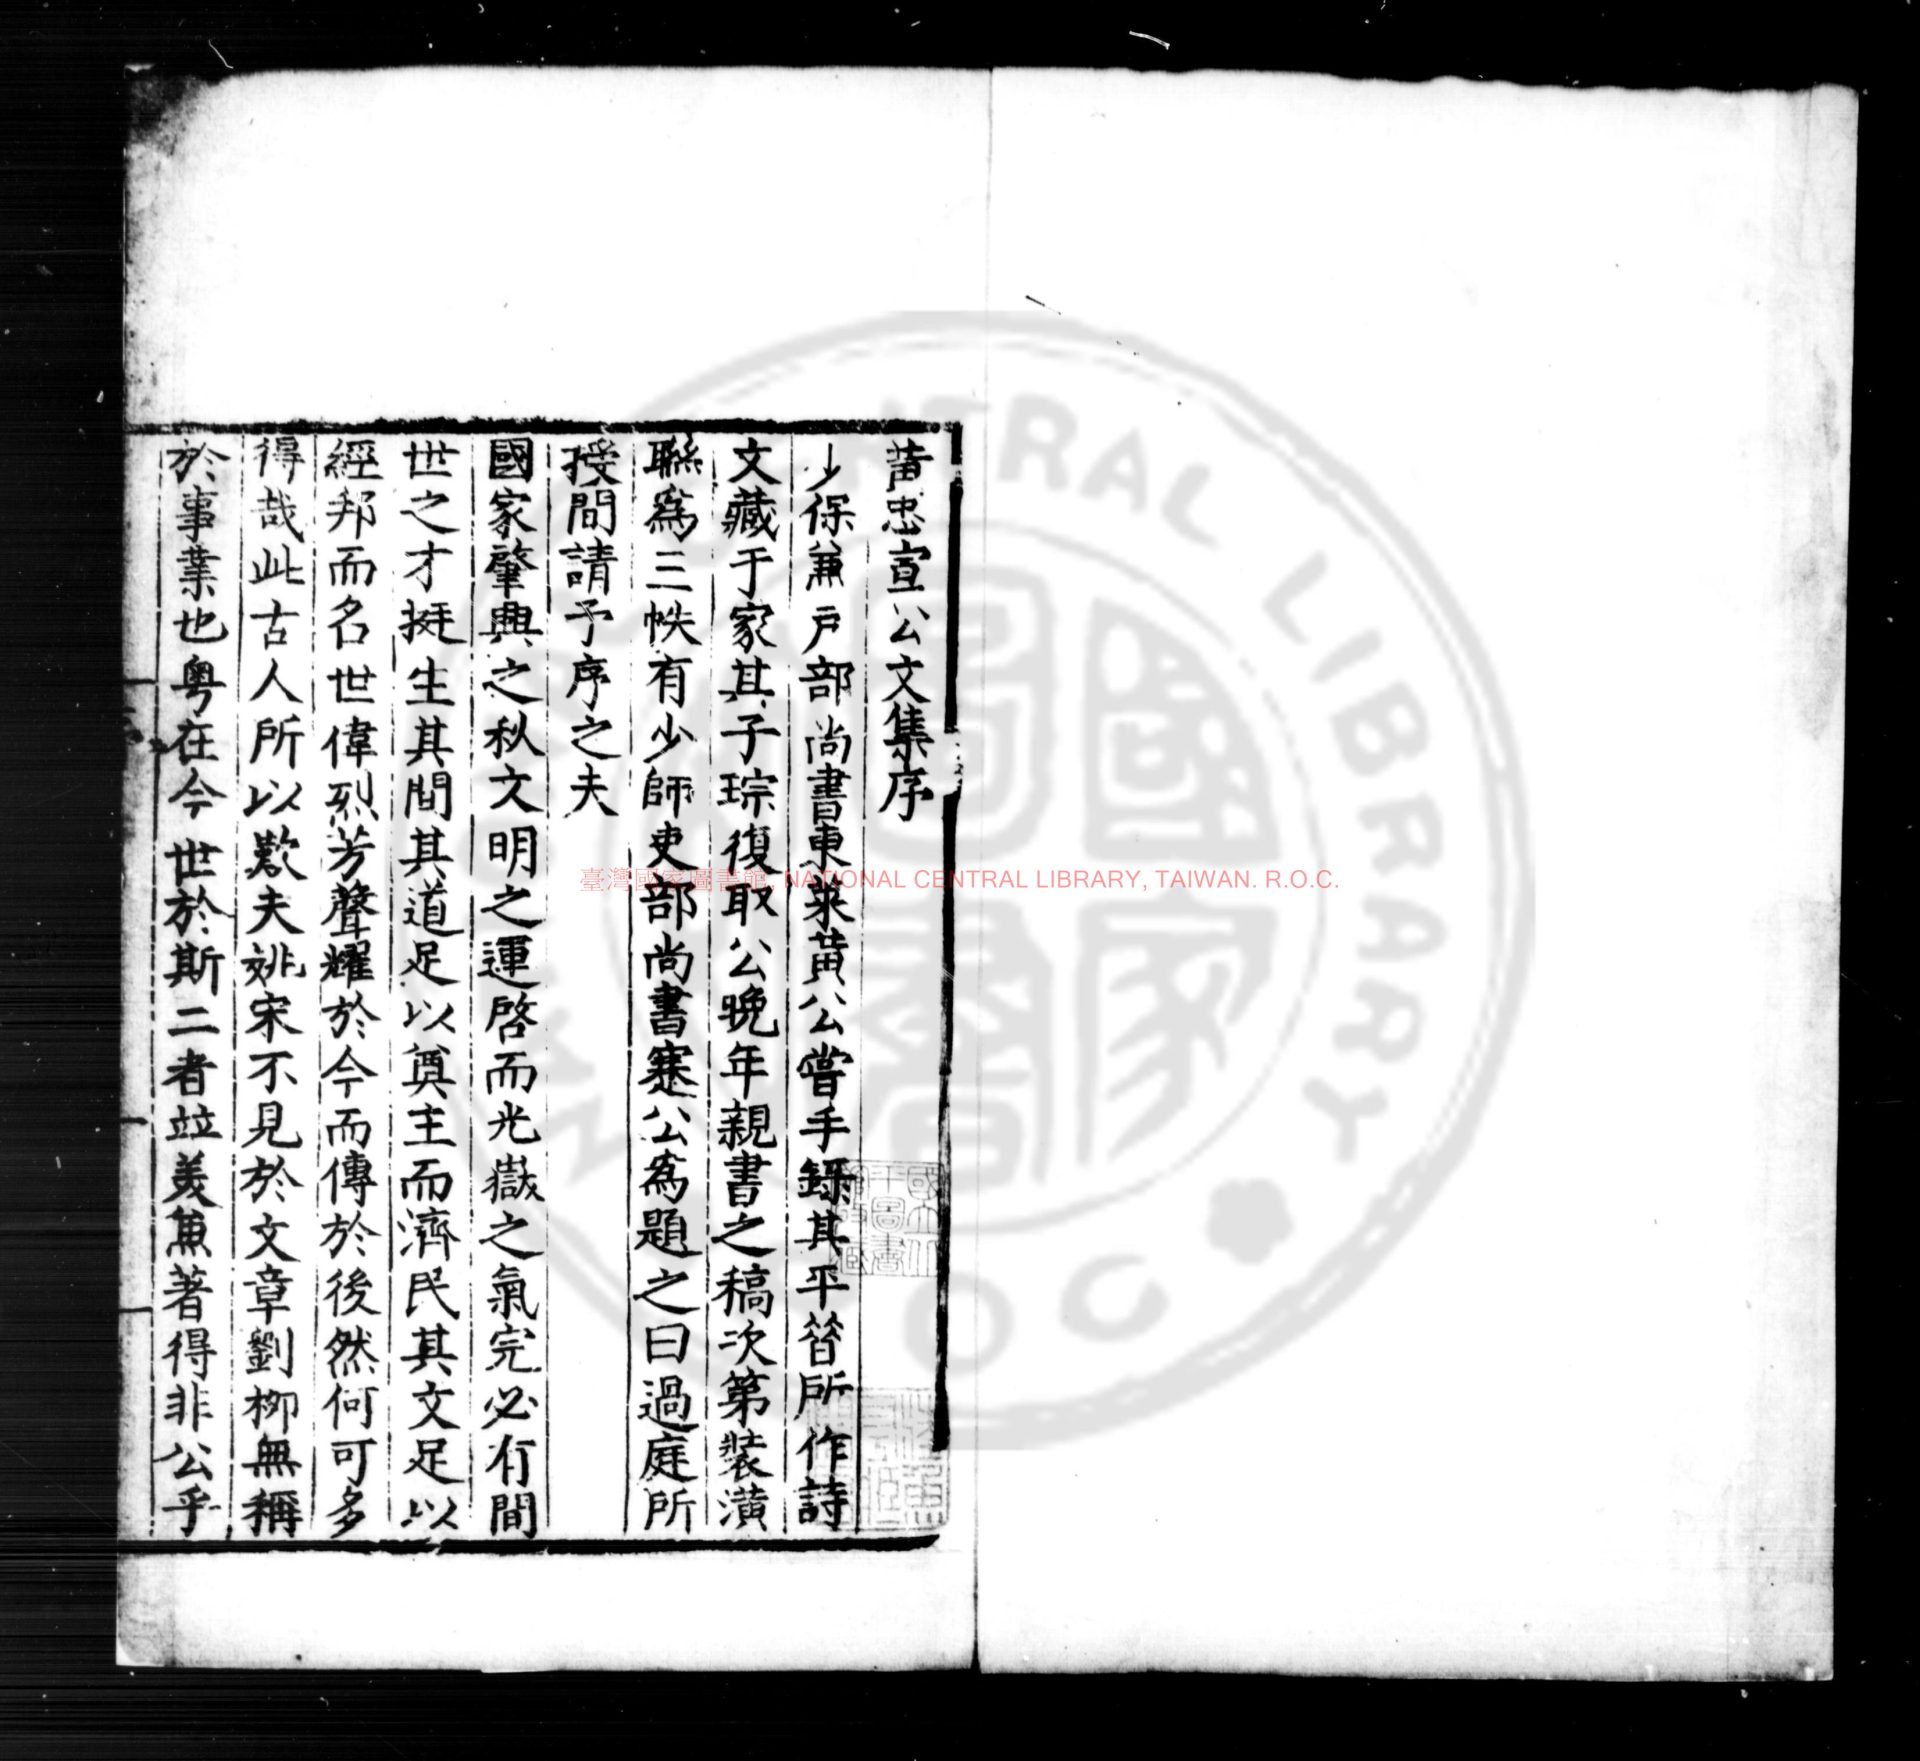 黃忠宣公文集序
少保兼戶部尚書東萊黃公嘗手錄其平昔所作詩
文藏于家其子琮復取公晚年親書之稿次第裝潢
聮為三帙有少師吏部尚書蹇公為題之曰過庭所
授間請予序之夫
國家肇興之秋文明之運啓而光嶽之氣完必有間
世之才挺生其間其道足以奠主而濟民其文足以
經邦而名世偉烈芳聲耀於今而傳於後然何可多
得哉此古人所以歎夫姚宋不見於文章劉柳無稱
於事業也粤在今世於斯二者竝美兼著得非公乎
臺灣國家圖書館, NATIONAL CENTRAL LIBRARY, TAIWAN. R.O.C.